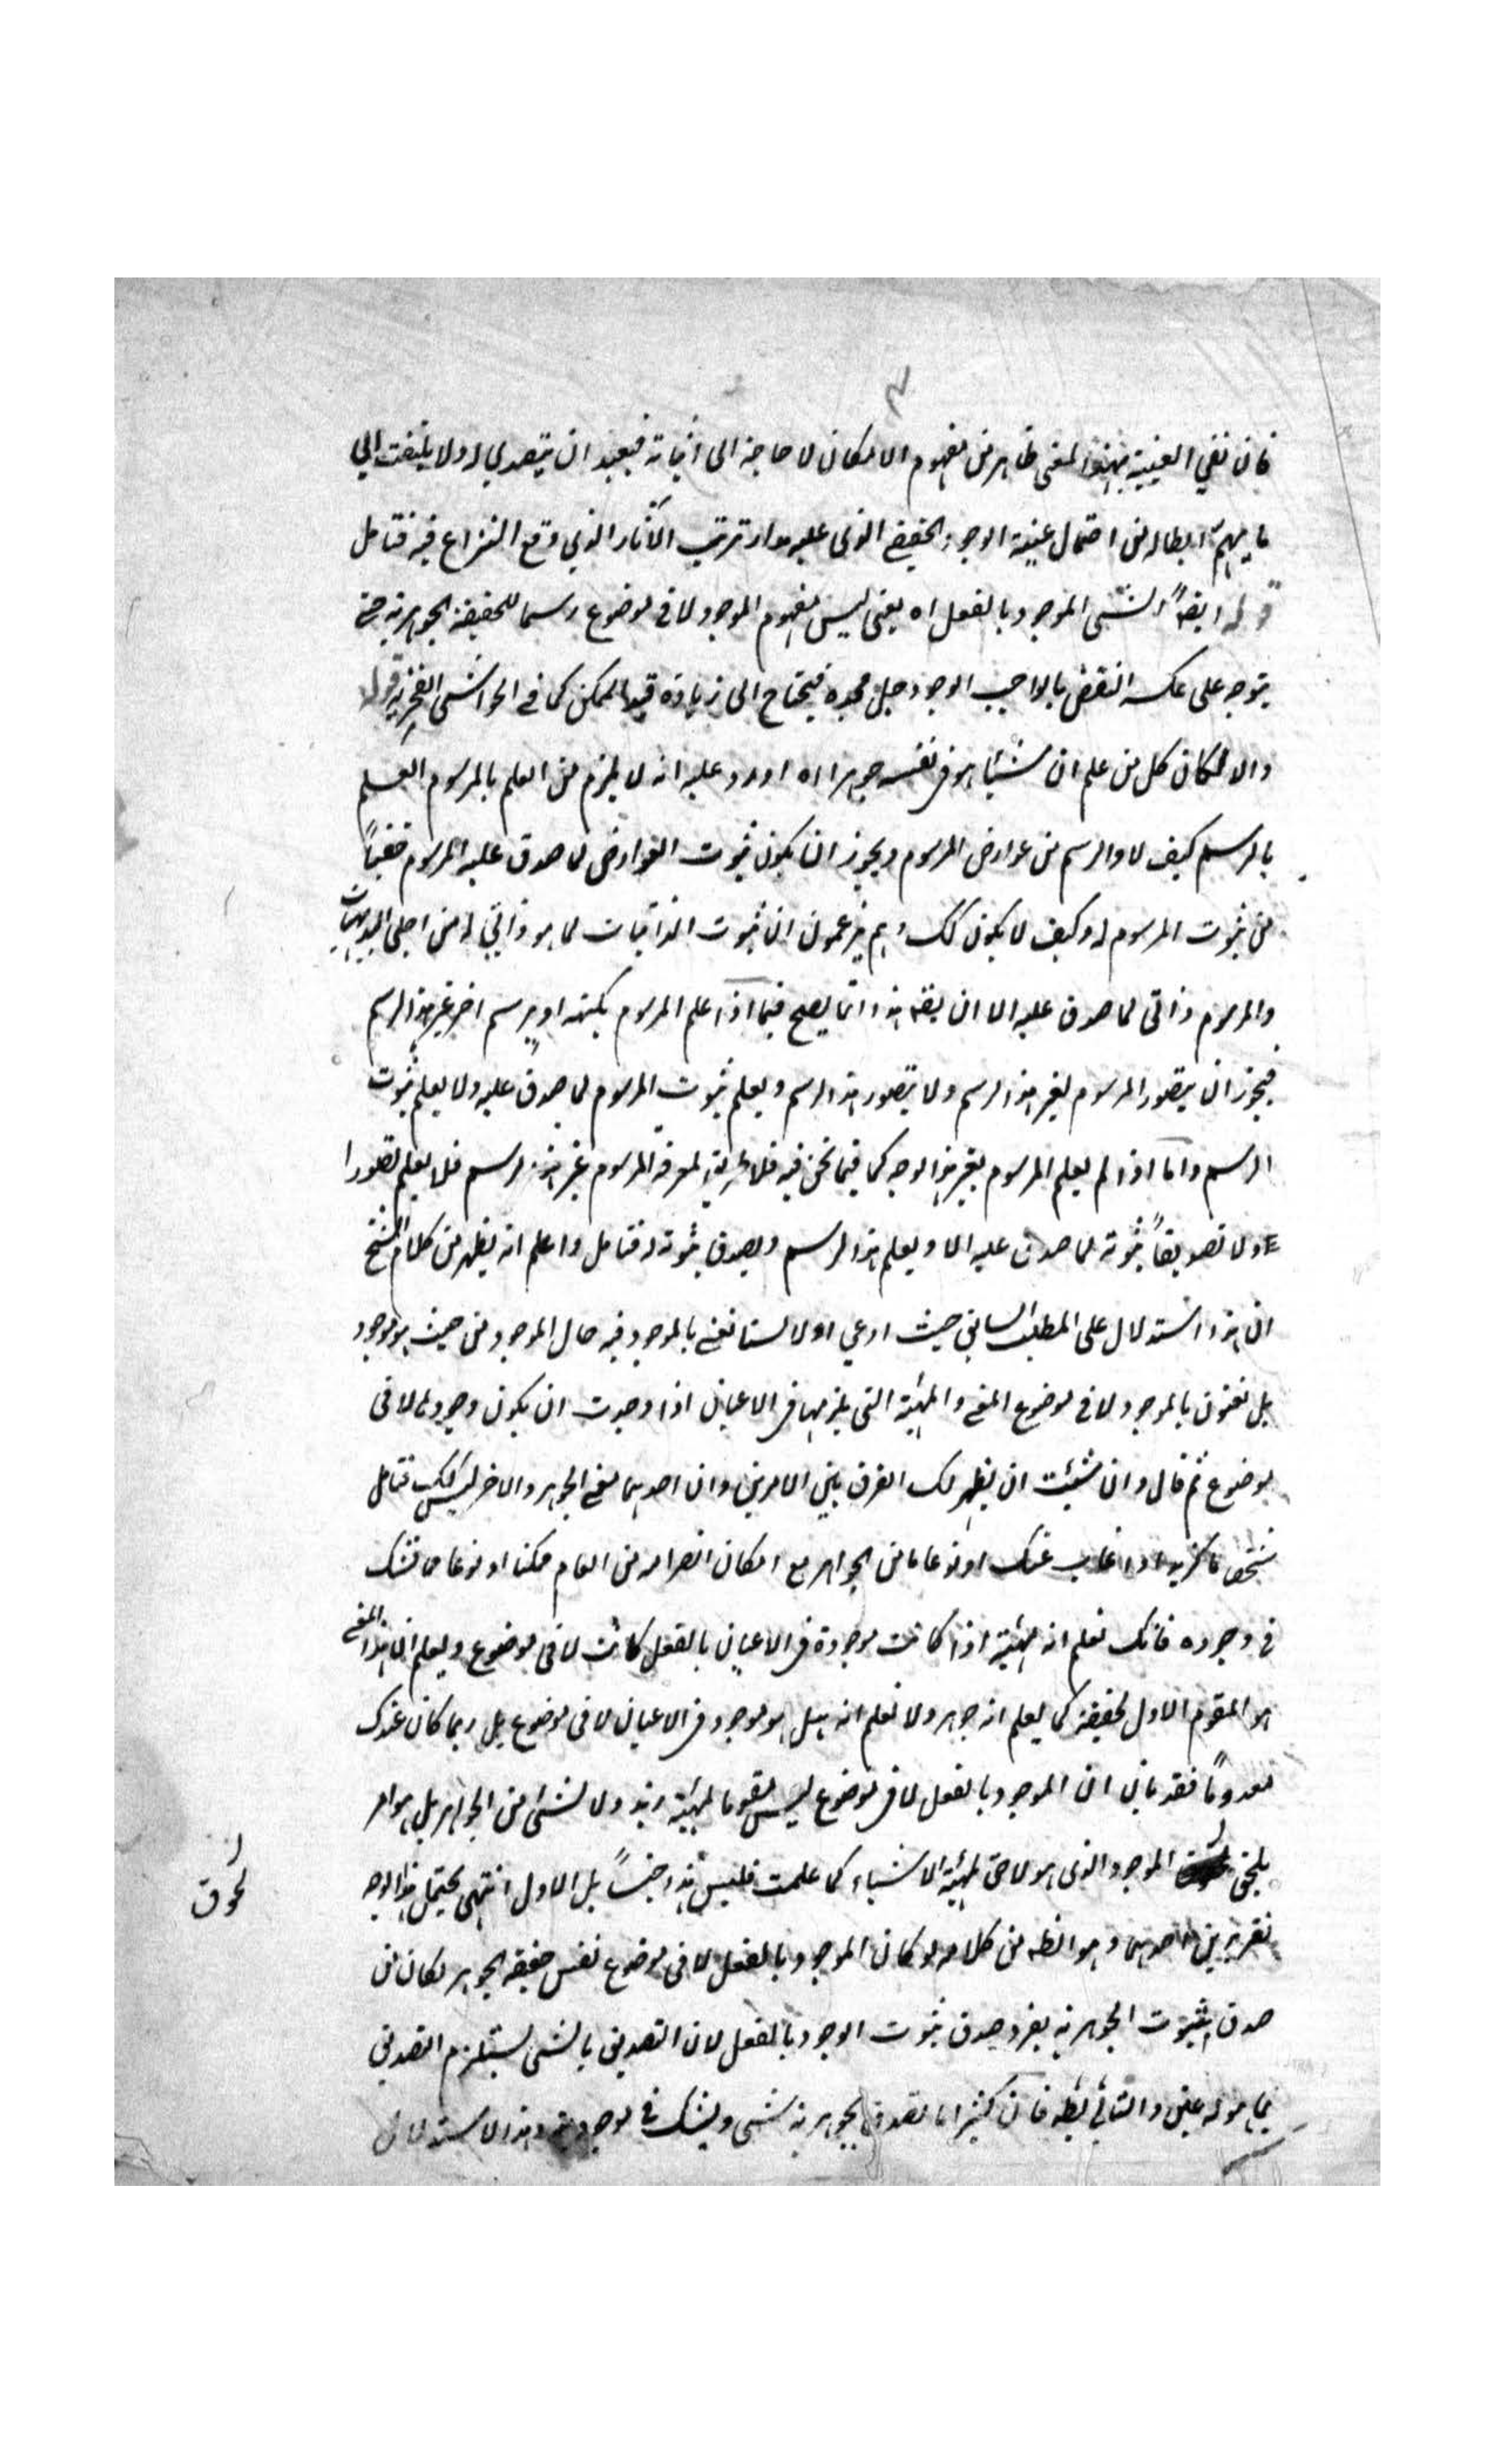 فان نفي العينية بهذا المعنى ظاهر من مفهوم الامكان لا حاجة الى اثباته فيبعد ان يتصدي له ولا يلتفت الي
ما يهم ابطاله من احتمال عينية الوجود الحقيقي الذى عليه مدار ترتب الآثار الذي وقع النزاع فيه فتامل
قوله ايضاً الشئى الموجود بالفعل اه يعنى ليس مفهوم الموجود لا في موضوع رسما للحقيقة الجوهرية حتى
يتوجه على عكسه النقض بالواجب الوجود جل مجده فيحتاج الى زيادة قيد الممكن كما في الحواشى الفخرية قوله
والا لكان كل من علم ان شيئا هو في نفسه جوهرا اه اورد عليه انه لا يلزم من العلم بالمرسوم العلم
بالرسم كيف لا والرسم من عوارض المرسوم ويجوز ان يكون ثبوت العوارض لما صدق عليه المرسوم خفياً
من ثبوت المرسوم له وكيف لا يكون كك وهم يزعمون ان ثبوت الذاتيات لما هو ذاتي له من اجلى البديهيات
والمرسوم ذاتى لما صدق عليه الا ان يقه هذا انما يصح فيما اذا علم المرسوم بكنهه او برسم اخر غير هذا الرسم
فيجوز ان يتصور المرسوم بغير هذا الرسم ولا يتصور هذا الرسم ويعلم ثبوت المرسوم لما صدق عليه ولا يعلم ثبوت
الرسم واما اذا لم يعلم المرسوم بغير هذا الوجه كما فيما نحن فيه فلا لمعرفة المرسوم غير هذا الرسم فلا يعلم تصورا
ولا تصديقاً ثبوته لما صدق عليه الا ويعلم هذا الرسم ويصدق بثبوته له فتامل واعلم انه يظهر من كلام الشيخ
ان هذا استدلال على المطلب السابق حيث ادعي اولا لسنا نعنى بالموجود فيه حال الموجود من حيث هو موجود
بل نعنون بالموجود لا في موضوع المعنى والمهية التى يلزمها في الاعيان اذا وجدت ان يكون وجودها لا فى
موضوع ثم قال وان شئت ان يظهر لك الفرق بين الامرين وان احدهما معنى الجوهر والاخر ليس كك فتامل
شخصا ما كزيد اذا غاب عنك او نوعا ما من الجواهر مع امكان انصرامه من العام ممكنا او نوعا مما تشك
في وجوده فانك تعلم انه مهية اذا كانت موجودة في الاعيان بالفعل كانت لا فى موضوع ويعلم ان هذا المعنى
هو المقوم الاول لحقيقته كما يعلم انه جوهر ولا تعلم انه هل هو موجود في الاعيان لا فى موضوع بل ربما كان عندك
معدوماً فقد بان ان الموجود بالفعل لا في موضوع ليس مقوما لمهية زيد ولا لشئ من الجواهر بل هو امر
يلحق الموجود الذى هو لاحق لمهية الاشياء كما علمت فليس هذا جنساً بل الاول انتهى يحتمل هذا الوجه
لحوق
تقريرين احدهما وهو الظه من كلامه لو كان الموجود بالفعل لا فى موضوع نفس حقيقة الجوهر لكان من
صدق بثبوت الجوهرية بفرد صدق ثبوت الوجود بالفعل لان التصديق بالشئى يستلزم التصديق
بما هو له عين والتالي بطه فان كثيرا ما نصدق بجوهرية شئى ويشك في موجوديته وهذا الاستدلال